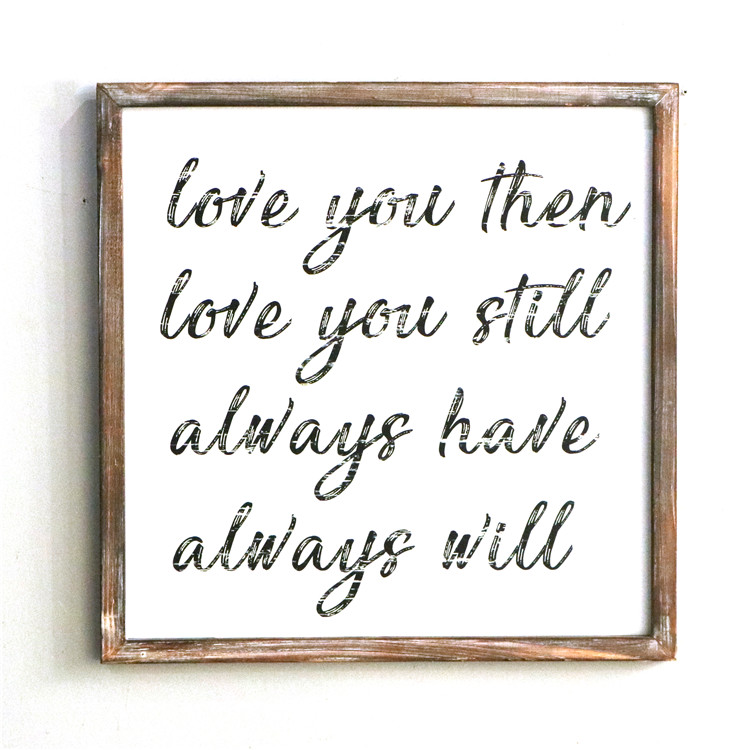 love you then
love you still
always have
always will